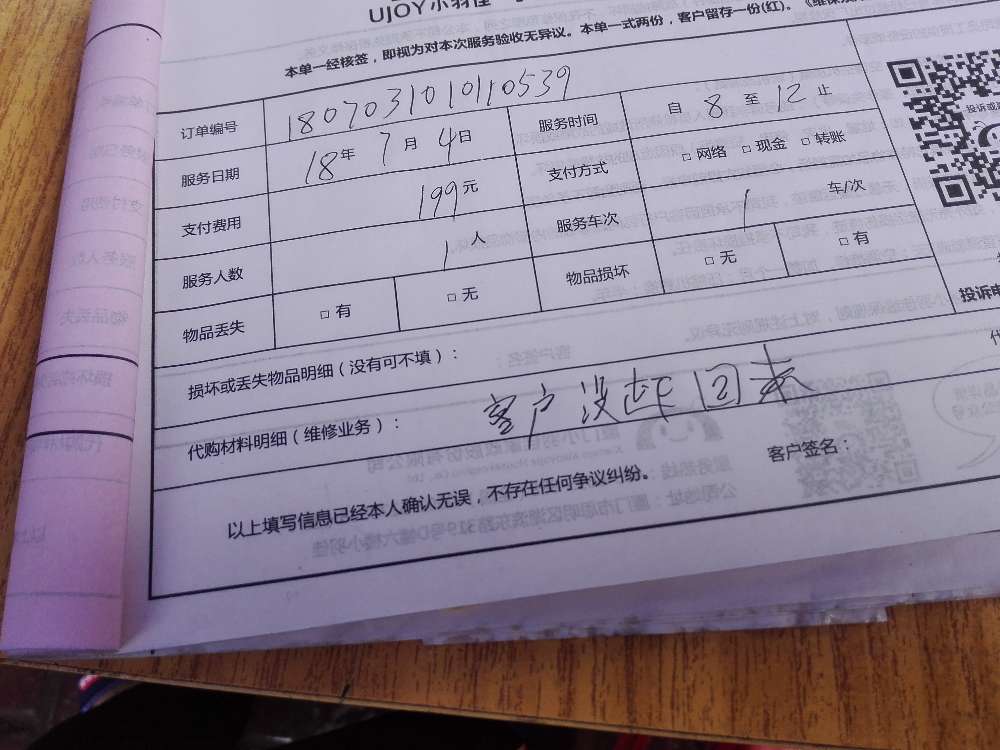 UJOY小羽佳
本单一经核签，即视为对本次服务验收无异议。本单一式两份，客户留存一份(红)。《维保
订单编号 1807031010110539
服务时间 自 8 至 12 止
服务日期 18 年 7 月 4 日
支付方式 □ 网络 □ 现金 □ 转账
支付费用 199 元
服务车次 1 车/次
服务人数 1 人
物品损坏 □ 无 □ 有
物品丢失 □ 有 □ 无
损坏或丢失物品明细（没有可不填）：
代购材料明细（维修业务）：
客户没赶回来
以上填写信息已经本人确认无误，不存在任何争议纠纷。
客户签名：
投诉电